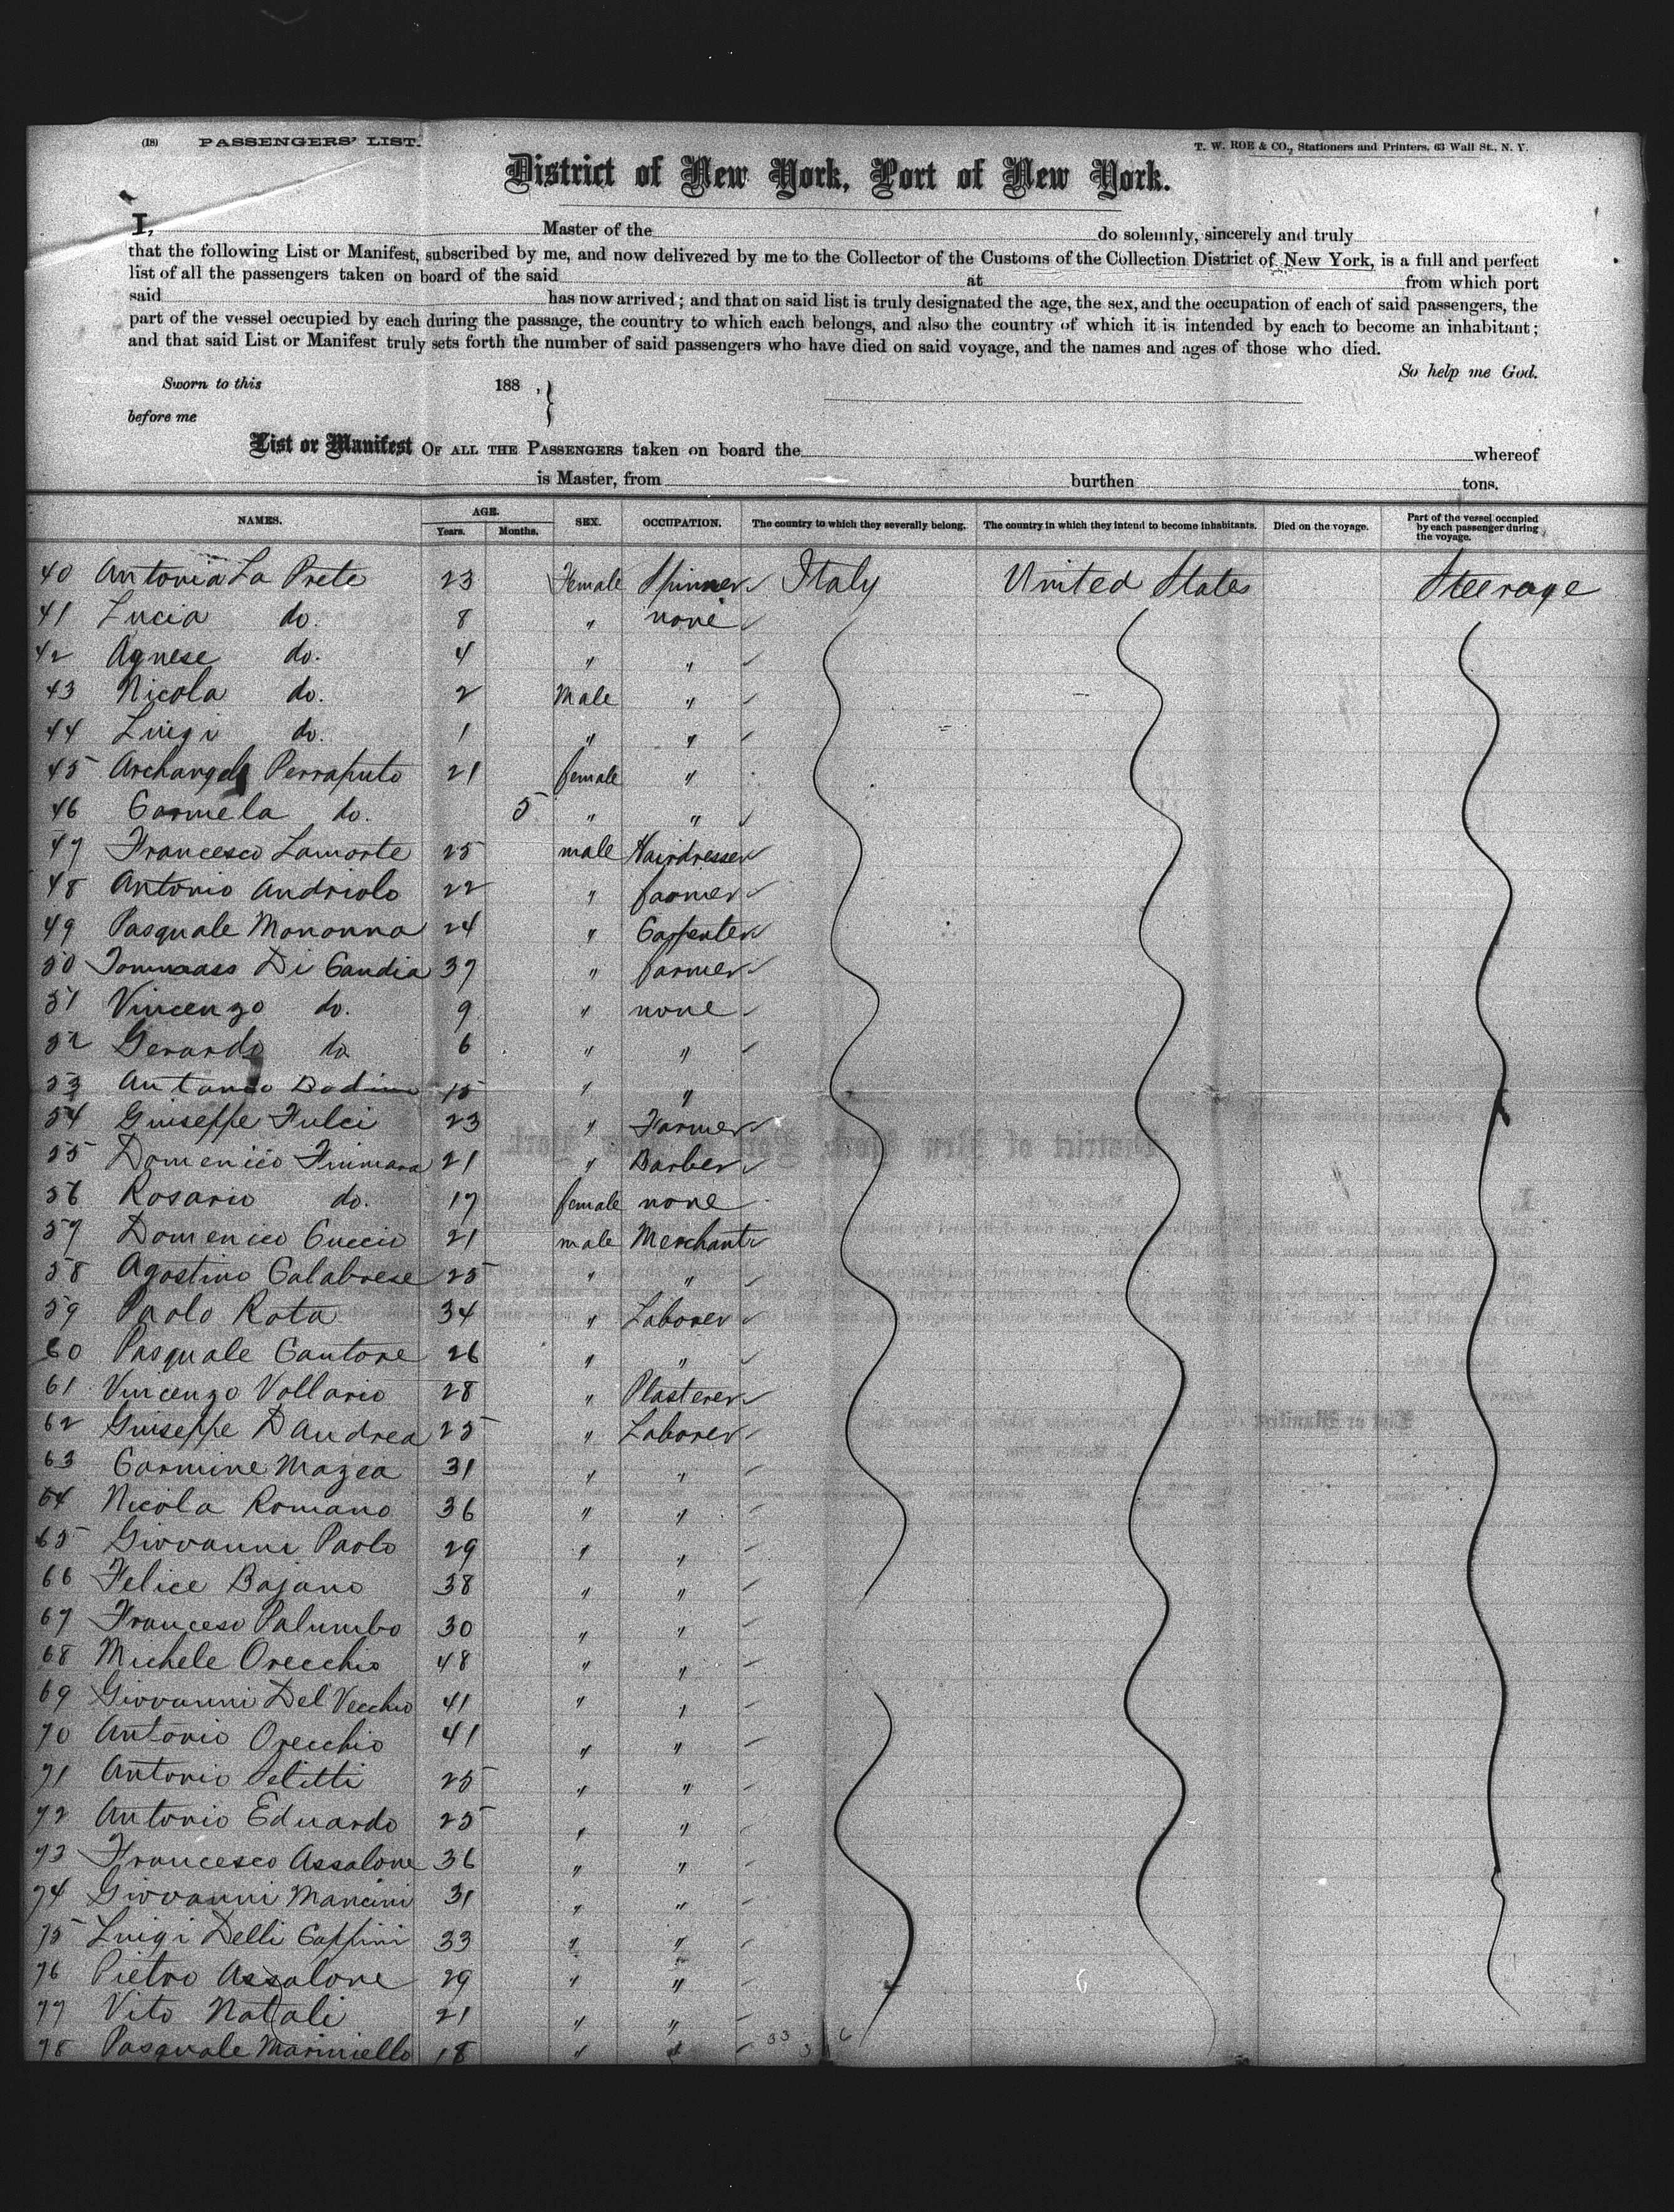 (18) PASSENGERS' LIST.
T. W. ROE & CO., Stationers and Printers, 63 Wall St., N. Y.
District of New York, Port of New York.
I, Master of the do solemnly, sincerely and truly
that the following List or Manifest, subscribed by me, and now delivered by me to the Collector of the Customs of the Collection District of New York, is a full and perfect
list of all the passengers taken on board of the said at from which port
said has now arrived; and that on said list is truly designated the age, the sex, and the occupation of each of said passengers, the
part of the vessel occupied by each during the passage, the country to which each belongs, and also the country of which it is intended by each to become an inhabitant;
and that said List or Manifest truly sets forth the number of said passengers who have died on said voyage, and the names and ages of those who died.
So help me God.
Sworn to this 188 ,}
before me
List or Manifest OF ALL THE PASSENGERS taken on board the whereof
is Master, from burthen tons.
NAMES. AGE. Years. Months. SEX. OCCUPATION. The country to which they severally belong. The country in which they intend to become inhabitants. Died on the voyage. Part of the vessel occupied by each passenger during the voyage.
40 Antonia La Prete 23 Female Spinner Italy United States Steerage
41 Lucia do. 8 " none
42 Agnese do. 4 " "
43 Nicola do. 2 Male "
44 Luigi do. 1 " "
45 Archangela Perraputo 21 female "
46 Carmela do. 5 " "
47 Francesco Lamorte 25 male Hairdresser
48 Antonio Andriolo 22 " farmer
49 Pasquale Manonna 24 " Carpenter
50 Tommaso Di Candia 37 " farmer
51 Vincenzo do. 9 " none
52 Gerardo do 6 " "
53 Antonio 15 " "
54 Giuseppe Fulci 23 " Farmer
55 Domenico 21 " Barber
56 Rosario do. 17 female none
57 Domenico Cuccio 21 male Merchant
58 Agostino Calabrese 25 " "
59 Paolo Rota 34 " Laborer
60 Pasquale Cantore 26 " "
61 Vincenzo Vollario 28 " Plasterer
62 Giuseppe D Andrea 25 " Laborer
63 Carmine Mazea 31 " "
64 Nicola Romano 36 " "
65 Giovanni Paolo 29 " "
66 Felice Bajano 38 " "
67 Francesco Palumbo 30 " "
68 Michele Orecchio 48 " "
69 Giovanni Del Vecchio 41 " "
70 Antonio Orecchio 41 " "
71 Antonio 25 " "
72 Antonio Eduardo 25 " "
73 Francesco Assalone 36 " "
74 Giovanni Mancini 31 " "
75 Luigi Delli Cappini 33 " "
76 Pietro Assalone 29 " "
77 Vito Natali 21 " "
78 Pasquale Marniello 18 " "